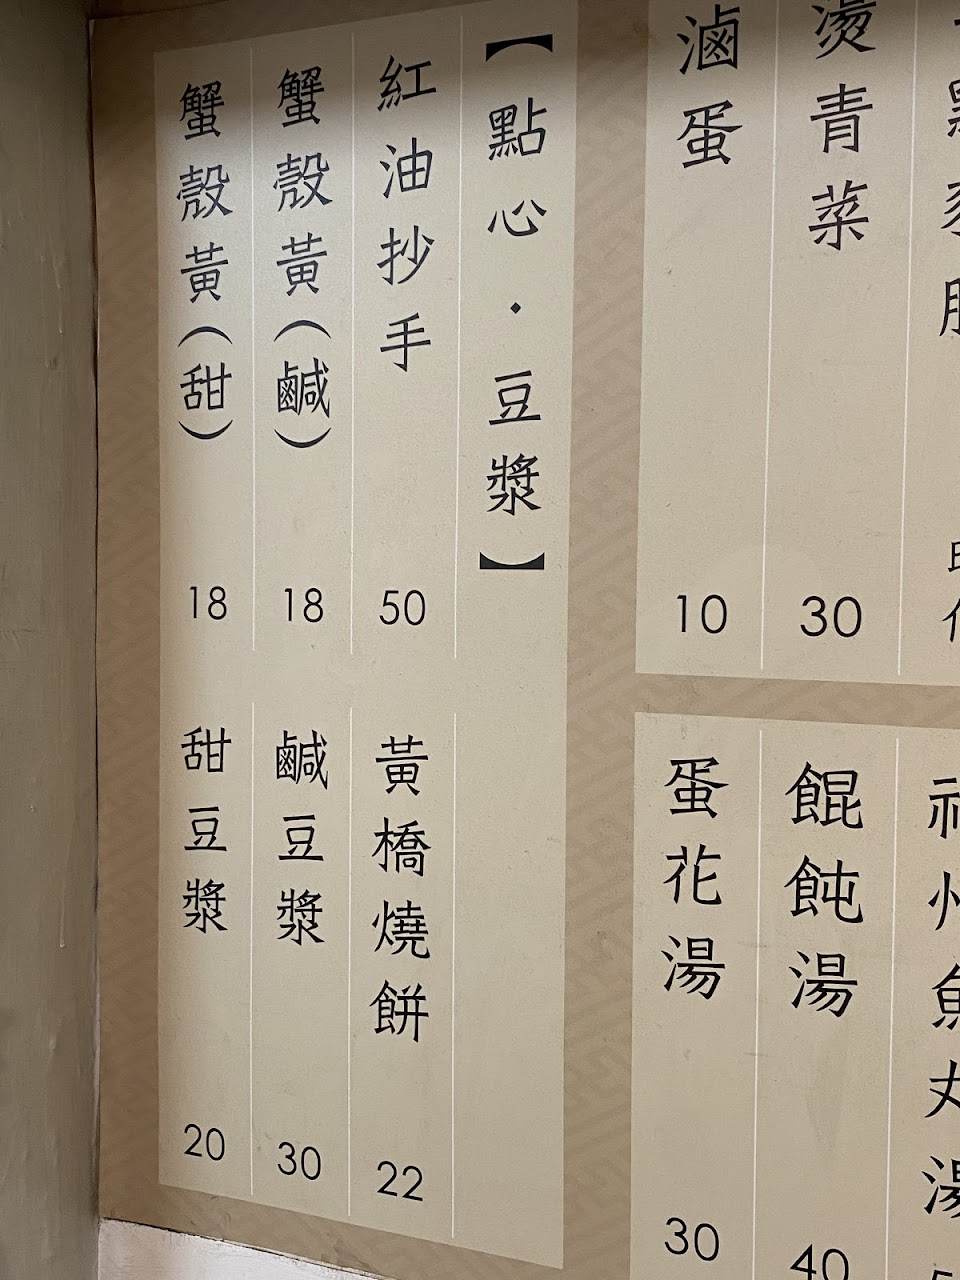 燙青菜
30
滷蛋
10
福州魚丸湯
餛飩湯
40
蛋花湯
30
【點心·豆漿】
紅油抄手
50
蟹殼黃(鹹)
18
蟹殼黃(甜)
18
黃橋燒餅
22
鹹豆漿
30
甜豆漿
20